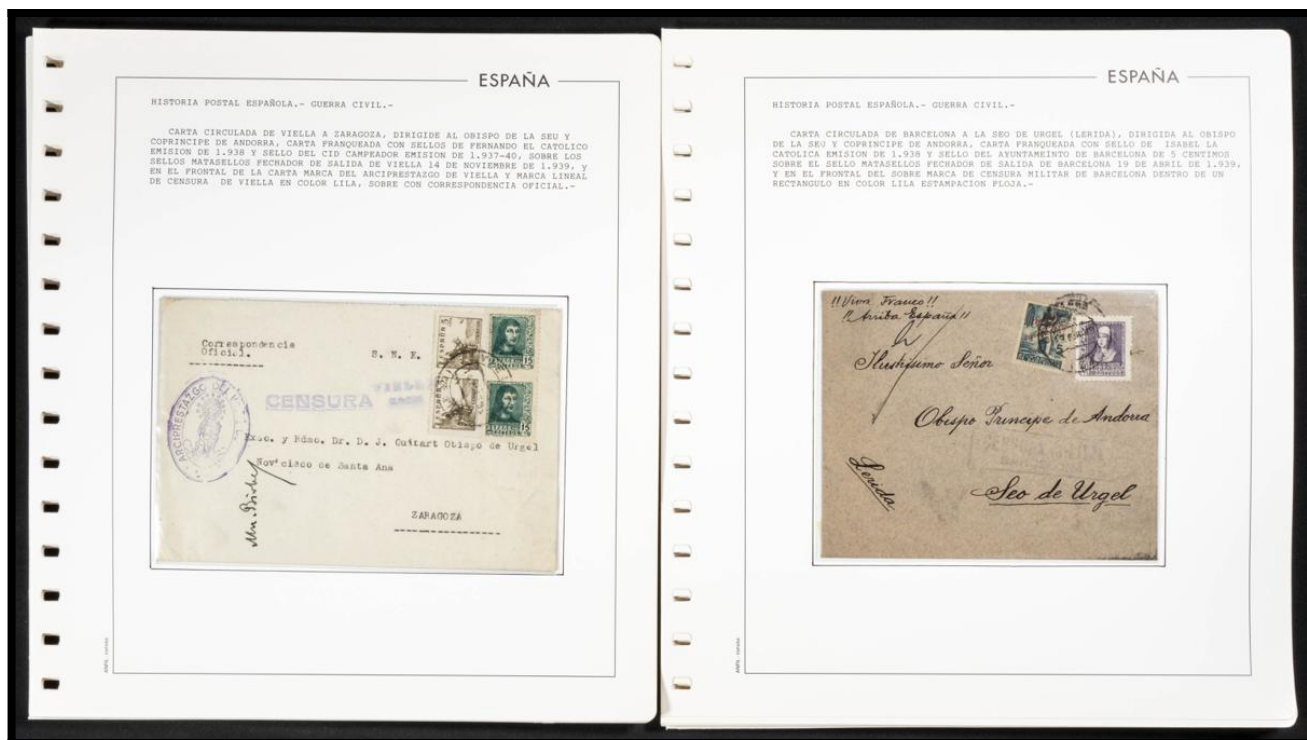 ESPAÑA
HISTORIA POSTAL ESPAÑOLA.- GUERRA CIVIL.-
CARTA CIRCULADA DE VIELLA A ZARAGOZA, DIRIGIDE AL OBISPO DE LA SEU Y
COPRINCIPE DE ANDORRA, CARTA FRANQUEADA CON SELLOS DE FERNANDO EL CATOLICO
EMISION DE 1.938 Y SELLO DEL CID CAMPEADOR EMISION DE 1.937-40, SOBRE LOS
SELLOS MATASELLOS FECHADOR DE SALIDA DE VIELLA 14 DE NOVIEMBRE DE 1.939, y
EN EL FRONTAL DE LA CARTA MARCA DEL ARCIPRESTAZGO DE VIELLA Y MARCA LINEAL
DE CENSURA DE VIELLA EN COLOR LILA, SOBRE CON CORRESPONDENCIA OFICIAL.-
Correspondencia
Oficial.
S. N. E.
CENSURA
ARCIPRESTAZGO DE
Exmo. y Rdmo. Dr. D. J. Guitart Obispo de Urgel
de Santa Ana
ZARAGOZA
ESPAÑA
HISTORIA POSTAL ESPAÑOLA.- GUERRA CIVIL.-
CARTA CIRCULADA DE BARCELONA A LA SEO DE URGEL (LERIDA), DIRIGIDA AL OBISPO
DE LA SEU Y COPRINCIPE DE ANDORRA, CARTA FRANQUEADA CON SELLO DE ISABEL LA
CATOLICA EMISION DE 1.938 Y SELLO DEL AYUNTAMEINTO DE BARCELONA DE 5 CENTIMOS
SOBRE EL SELLO MATASELLOS FECHADOR DE SALIDA DE BARCELONA 19 DE ABRIL DE 1.939,
Y EN EL FRONTAL DEL SOBRE MARCA DE CENSURA MILITAR DE BARCELONA DENTRO DE UN
RECTANGULO EN COLOR LILA ESTAMPACION FLOJA.-
!!Viva Franco!!
!!Arriba España!!
Ilustrísimo Señor
Obispo Príncipe de Andorra
Lerida
Seo de Urgel